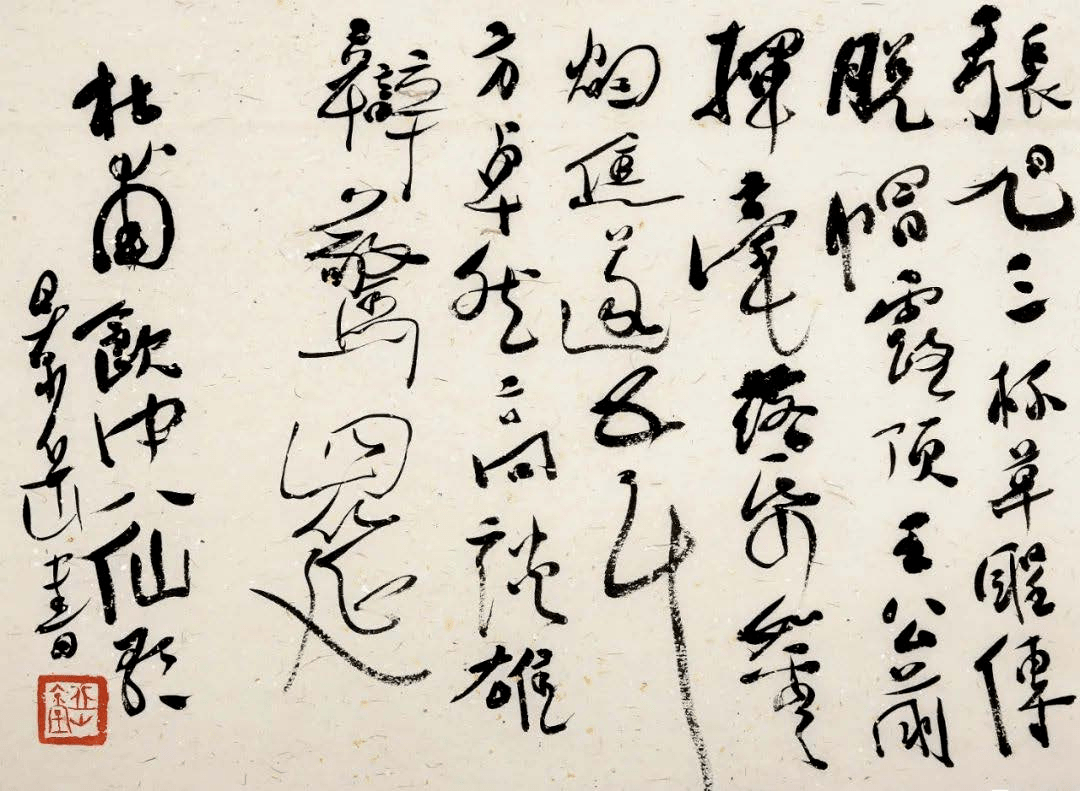 張旭三杯草聖傳
脫帽露頂王公前
揮毫落帋如雲
烟焦遂五斗
方卓然高談雄
辯驚四筵
杜甫飲中八仙歌
書